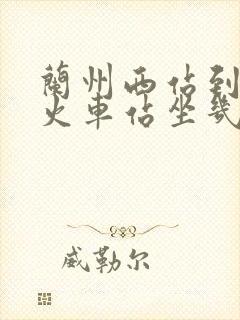 蘭州西佔到
火車佔坐幾
威勒尔